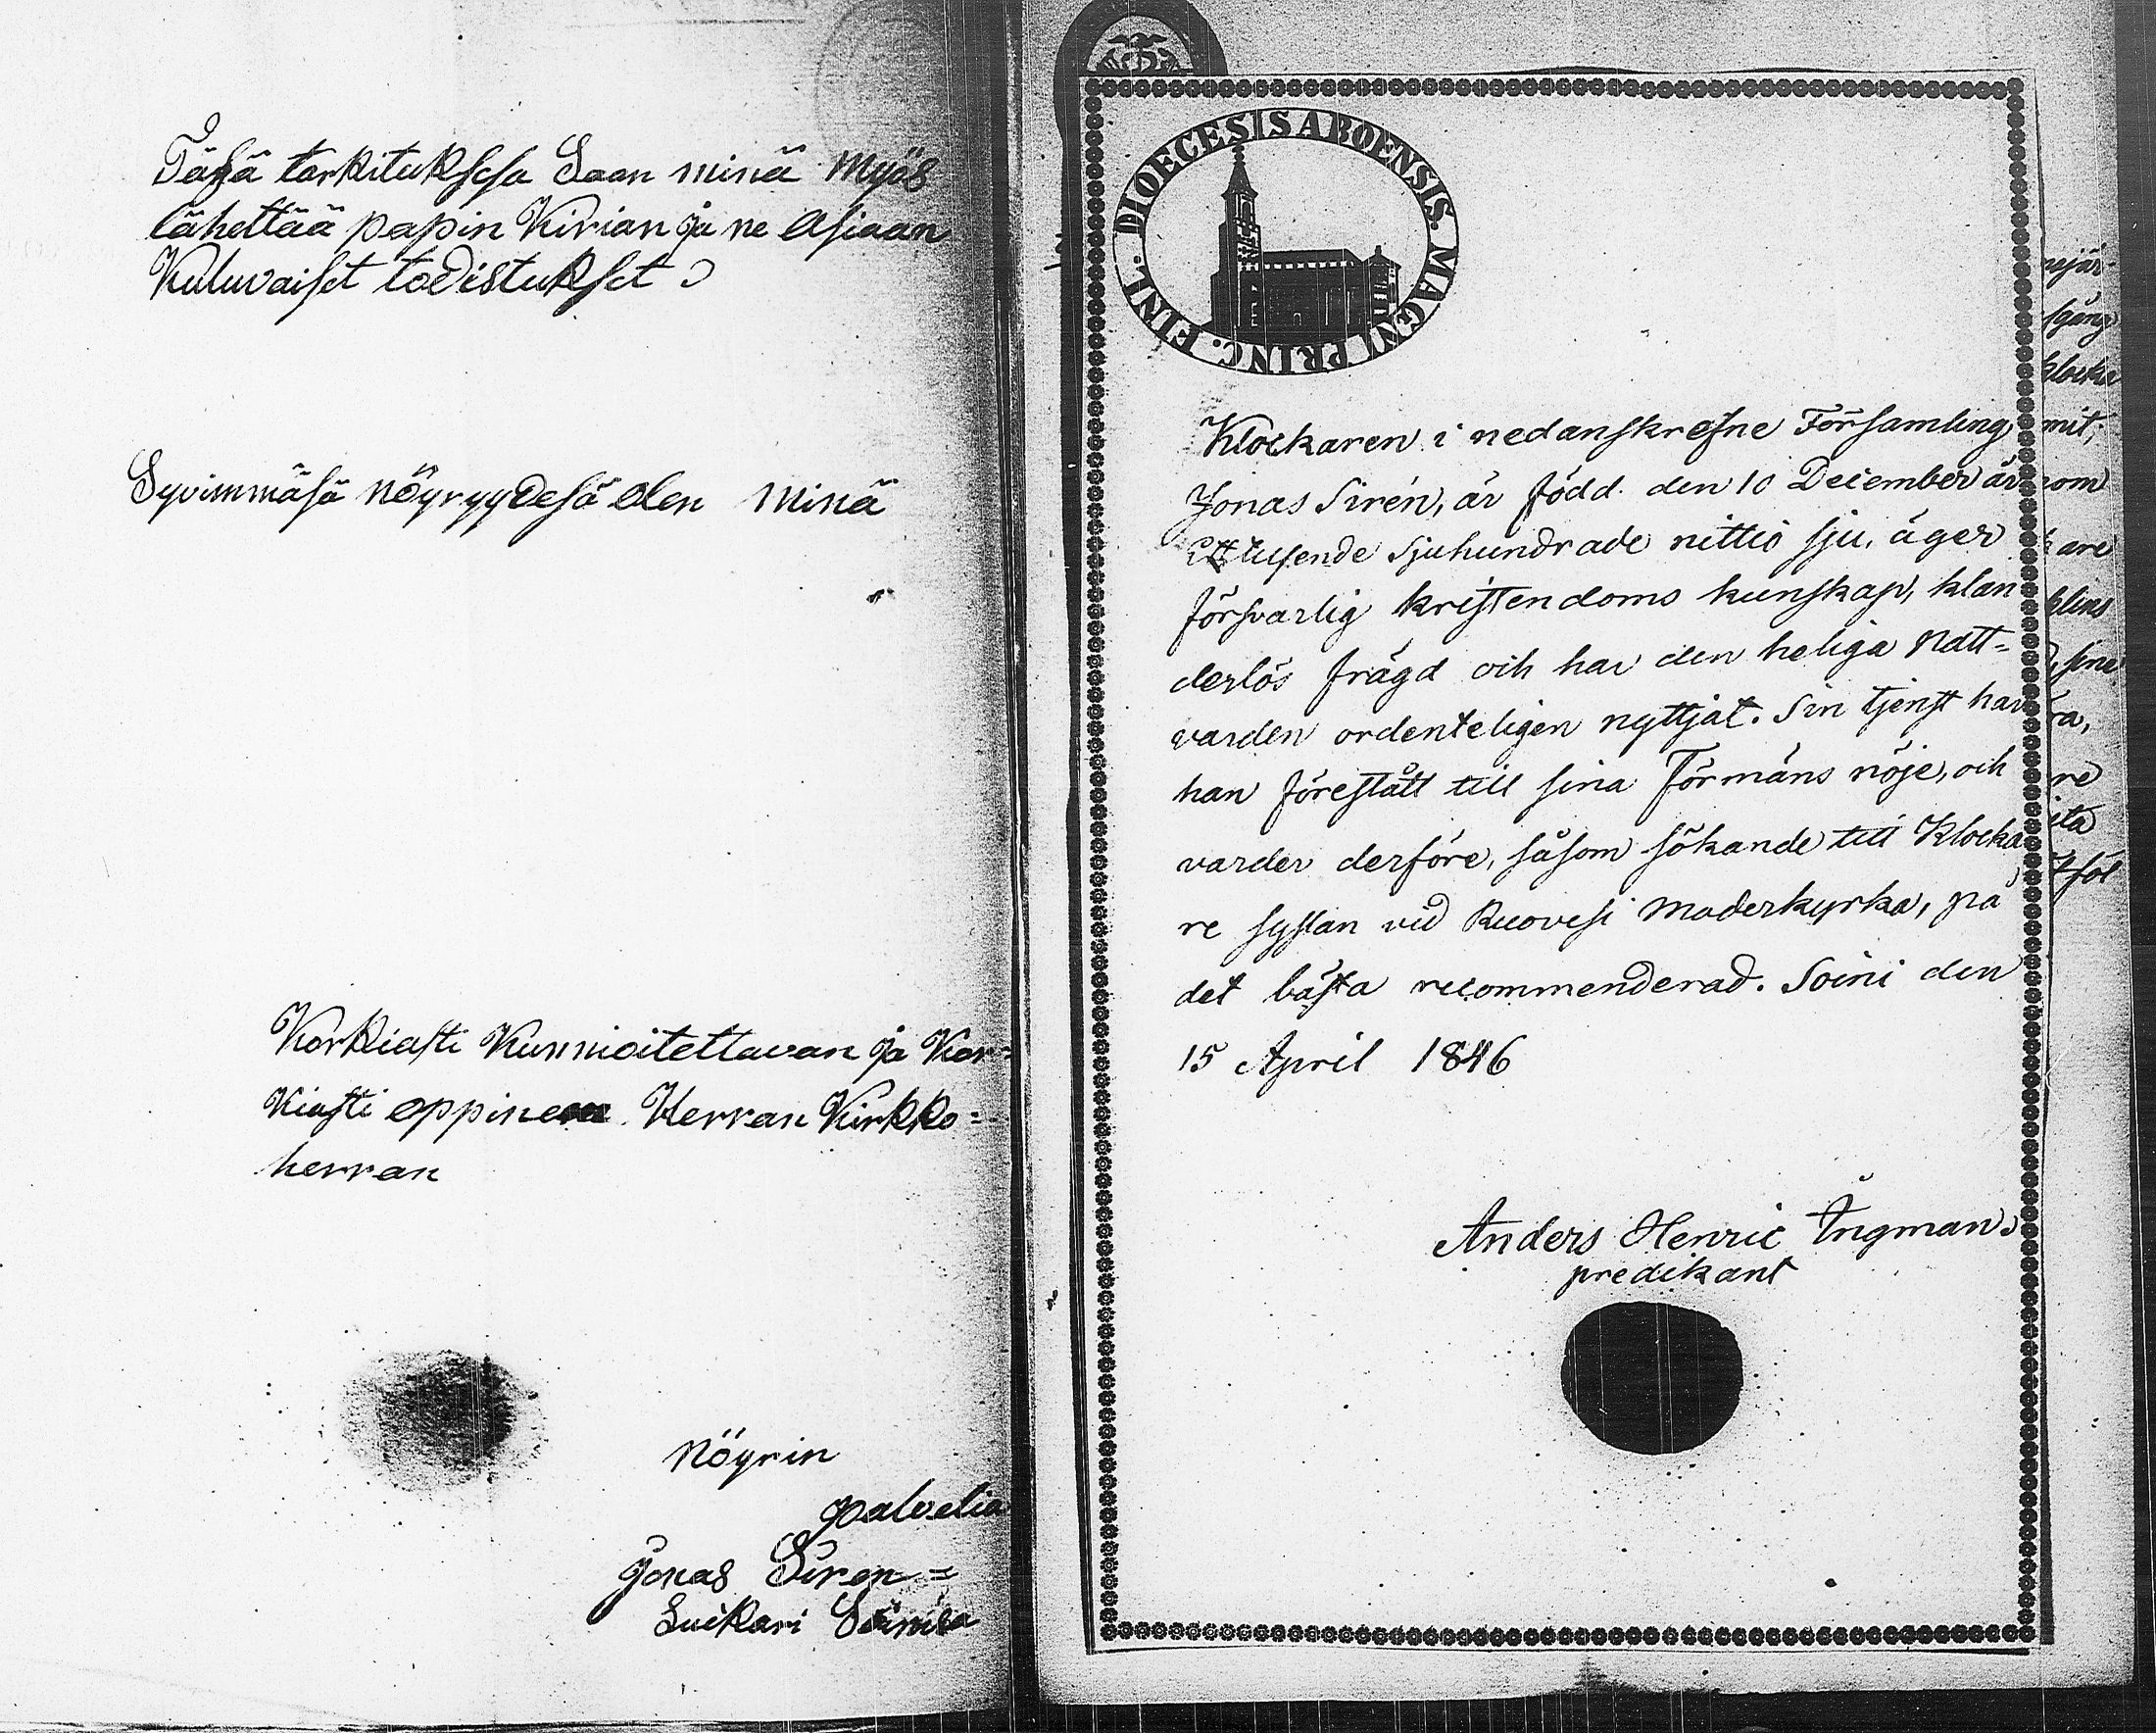 Täsä tarkituksesa Saan minä myös
lähettää papin Kirian ja ne Asiaan
Kuluvaiset todistukset
Syvimmäsä nöyryydesä olen minä
Korkiasti Kunnioitettavan ja Kor=
Kiasti oppineen Herran Kirkko=
herran
nöyrin
palvelia
Jonas Siren =
Lukkari Soinisa
DIOECESIS ABOENSIS. MAGNI PRINC. FINL.
Klockaren i nedanskrefne Församling,
Jonas Sirén, är född. den 10 December år
Ett tusende Sjuhundrade nittio sju, äger
försvarlig kristendoms kunskap, klan
derlös frägd och har den heliga Natt=
varden ordenteligen nyttjat. Sin tjenst har
han förestått till sina Förmäns nöje, och
varder derföre, såsom sökande till Klocka
re sysslan vid Ruovesi Moderkyrka, på
det bästa recommenderad. Soini den
15 April 1846
Anders Henric Ingman.
predikant
klocka
mit,
om
are
sine
ra,
re
ita